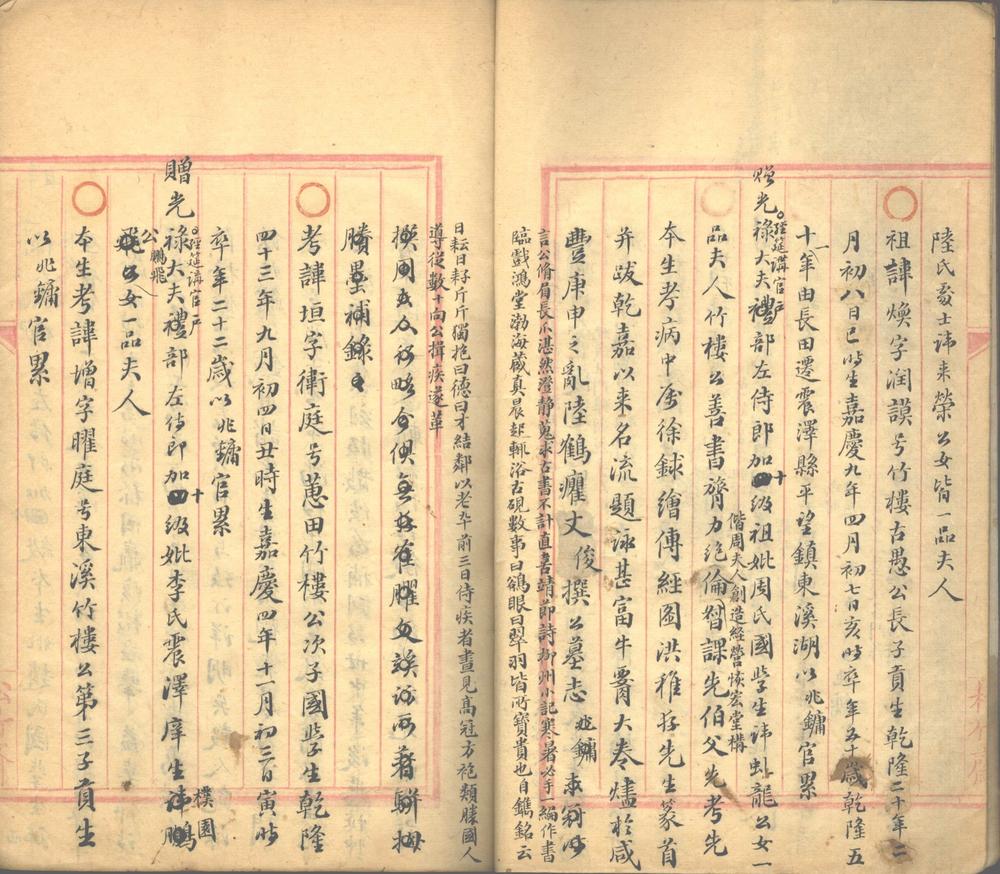 陸氏處士諱來榮公女皆一品夫人
祖諱煥字潤謨号竹樓古愚公長子貢生乾隆二十年二
月初八日巳時生嘉慶九年四月初七日亥時卒年五十歲乾隆五
十一年由長田遷震澤縣平望鎮東溪湖以兆鏞官累
贈光祿大夫經筵講官禮部左侍郎加十級祖妣周氏國學生諱虬龍公女一
品夫人竹樓公善書膂力絕倫偕周夫人創造經營恢宏堂構督課先伯父先考先
本生考病中属徐錄繪傳經圖洪稚存先生篆首
并跋乾嘉以來名流題詠甚富牛腰大卷燼於咸
豐庚申之亂陸鶴癯丈俊撰公墓志
言公脩眉長爪湛然澄靜蒐求古書不計直喜靖節詩柳州小記寒暑必手一編作書
臨戲鴻堂渤海藏真晨起輒浴古硯數事曰鴝眼曰翠羽皆所寶貴也自鐫銘云
日耘日耔斤斤獨抱曰德曰才結鄰以老卒前三日侍疾者晝見高冠方袍類勝國人
導從數十向公揖疾遂革
謄墨補錄
考諱垣字衛庭号蕙田竹樓公次子國學生乾隆
四十三年九月初四日丑時生嘉慶四年十一月初三日寅時
卒年二十二歲以兆鏞官累
贈光祿大夫經筵講官禮部左侍郎加十級妣李氏震澤庠生諱樸園
公鵬飛公女一品夫人
本生考諱增字曜庭号東溪竹樓公第三子貢生
以兆鏞官累